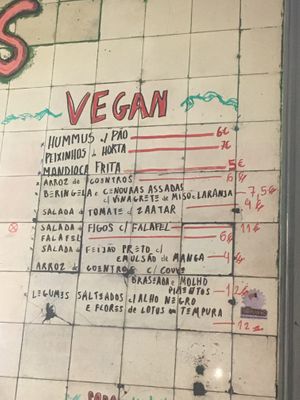 S
VEGAN
HUMMUS c/ PÃO 6€
PEIXINHOS da HORTA 7€
MANDIOCA FRITA 5€
ARROZ de COENTROS 6
BERINGELA e CENOURAS ASSADAS
c/ VINAGRETE de MISO e LARANJA 7,5
SALADA de TOMATE c/ ZAATAR 4
SALADA de FIGOS c/ FALAFEL 11
FALAFEL 6
SALADA de FEIJÃO PRETO c/
EMULSÃO de MANGA 4
ARROZ de COENTROS c/ COUVE
BRASEADA e MOLHO
PIMENTOS 12
LEGUMES SALTEADOS c/ ALHO NEGRO
e FLORES de LOTUS em TEMPURA
12